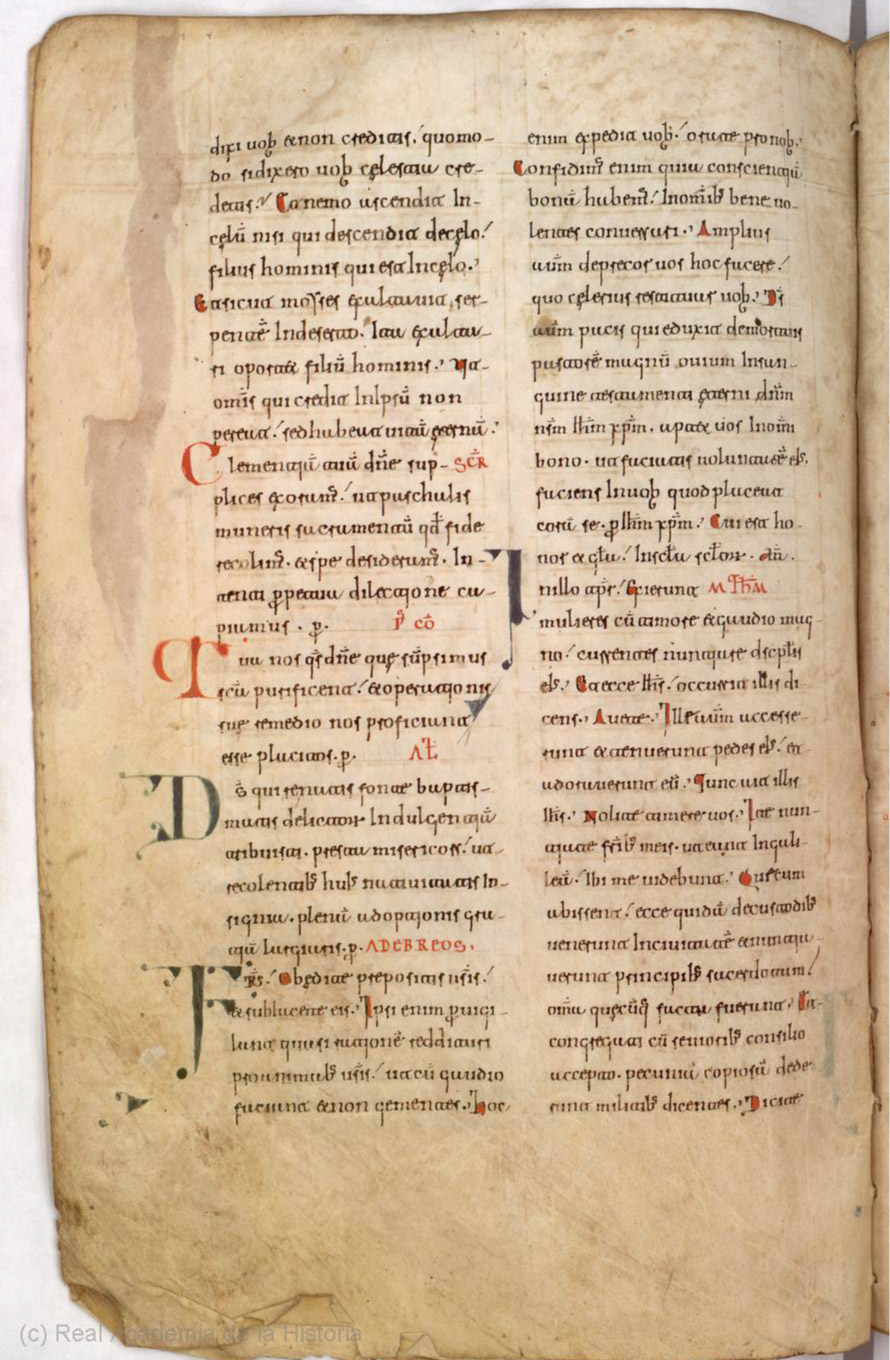 dixi uob̄ & non creditis, quomo-
do si dixero uob̄ cęlestia cre-
detis. Et nemo ascendit In-
cęlū nisi qui descendit de cęlo.
filius hominis qui est In cęlo.
Et sicut moyses exaltauit ser-
pentē In deserto. Ita exalta-
ri oportet filiū hominis. Ut
om̄is qui credit In ipsū non
pereat. sed habeat uitā ęternā.
Clementiā tuā dn̄e sup- SCR̄
plices exoram̄. ut paschalis
muneris sacramentū qd̄ fide
recolim̄. & spe desideram̄. In-
tenti ꝑpetua dilectione ca-
piamus. ꝑ. P̄ CŌ
Tua nos qs̄ dn̄e quę sūpsimus
scā purificent. & operationis
sue remedio nos proficiant
esse placitos. ꝑ. AL̄
Ds̄ qui renatis fonte baptis-
matis delictorum Indulgentiā
tribuisti. presta misericors. ut
recolentib; hui; natiuitatis In-
signia. plenā adoptionis gra-
tiā largiaris. ꝑ. AD EBREOS.
Frs̄. Obedite prepositis urīs.
& subiacete eis. Ipsi enim ꝑuigi-
lant quasi rationē reddituri
pro animab; urīs. ut cū gaudio
faciant & non gementes. Hoc
enim expedit uob̄. Orate pro nob̄.
Confidim̄ enim quia conscientiā
bonā habem̄. In omīb; bene uo-
lentes conuersari. Amplius
autm̄ deprecor uos hoc facere.
quo celerius restituar uob̄. Ds̄
autm̄ pacis qui eduxit de mortuis
pastorē magnū ouium In san-
guine testamenti ęterni dnm̄
nsm̄ ihm̄ xpm̄. aptet uos In omī
bono. ut faciatis uoluntatē ei;.
faciens In uob̄ quod placeat
corā se. ꝑ ihm̄ xpm̄. Cui est ho-
nor & glā. In scl̄a sclorum. am̄.
In illo tp̄r. Exierunt MTHM̄
mulieres cū timore & gaudio mag-
no. currentes nuntiare discplīs
ei;. Et ecce ihs̄. occurrit illis di-
cens. Auete. Ille autm̄ accesse-
runt & tenuerunt pedes ei;. et
adorauerunt eū. Tunc ait illis
ihs̄. Nolite timere uos. Ite nun-
tiate frīb; meis. ut eant In gali-
leā. Ibi me uidebunt. Que cum
abissent. ecce quidā de custodib;
uenerunt In ciuitatē & nuntia-
uerunt principib; sacerdotum.
omā quecūq; facta fuerunt. Et
congregati cū seniorib; consilio
accepto. pecuniā copiosā dede
runt militib; dicentes. Dicite